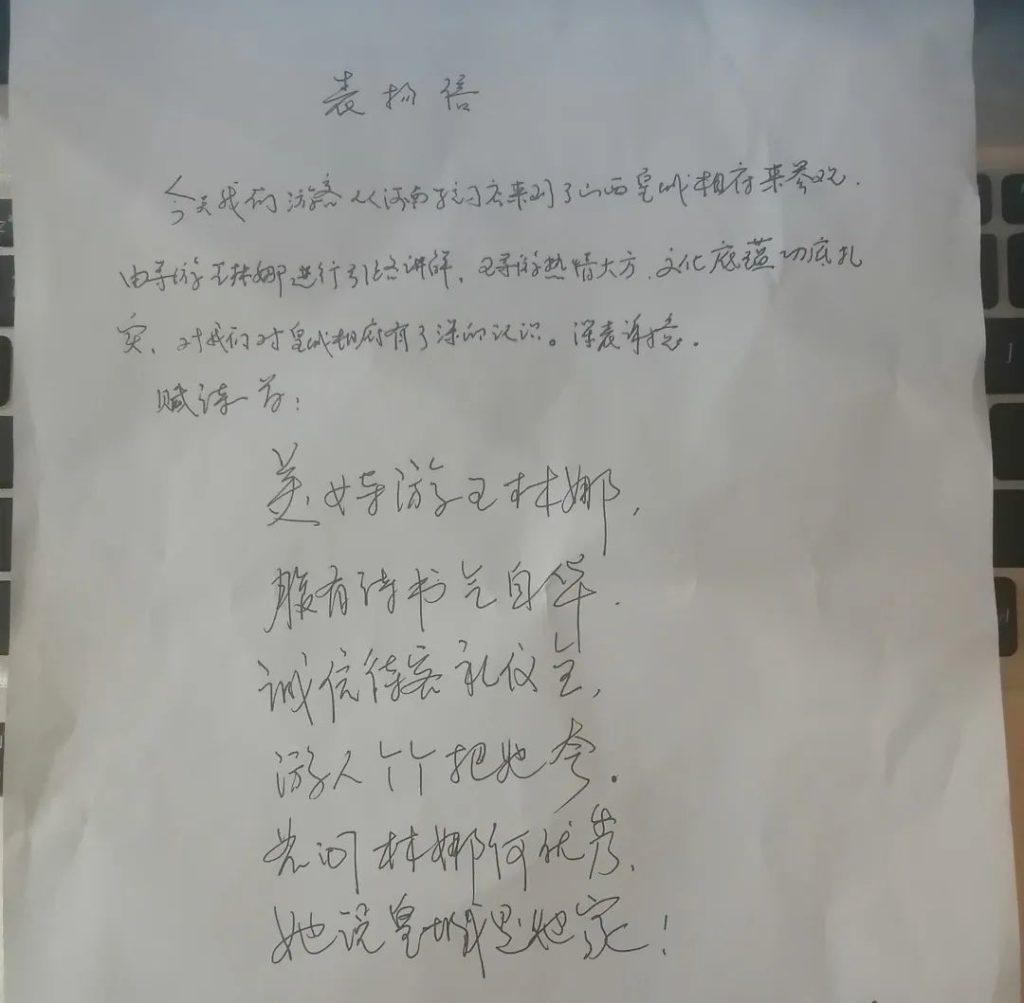 表扬信
今天我们游客从河南来到了山西皇城相府来参观.
由导游王林娜进行引路讲解、王导游热情大方、文化底蕴功底扎
实、对我们对皇城相府有了深的认识。深表谢意.
赋诗一首:
美女导游王林娜,
腹有诗书气自华.
诚信待客礼仪全,
游人个个把她夸.
若问林娜何优秀,
她说皇城是她家!